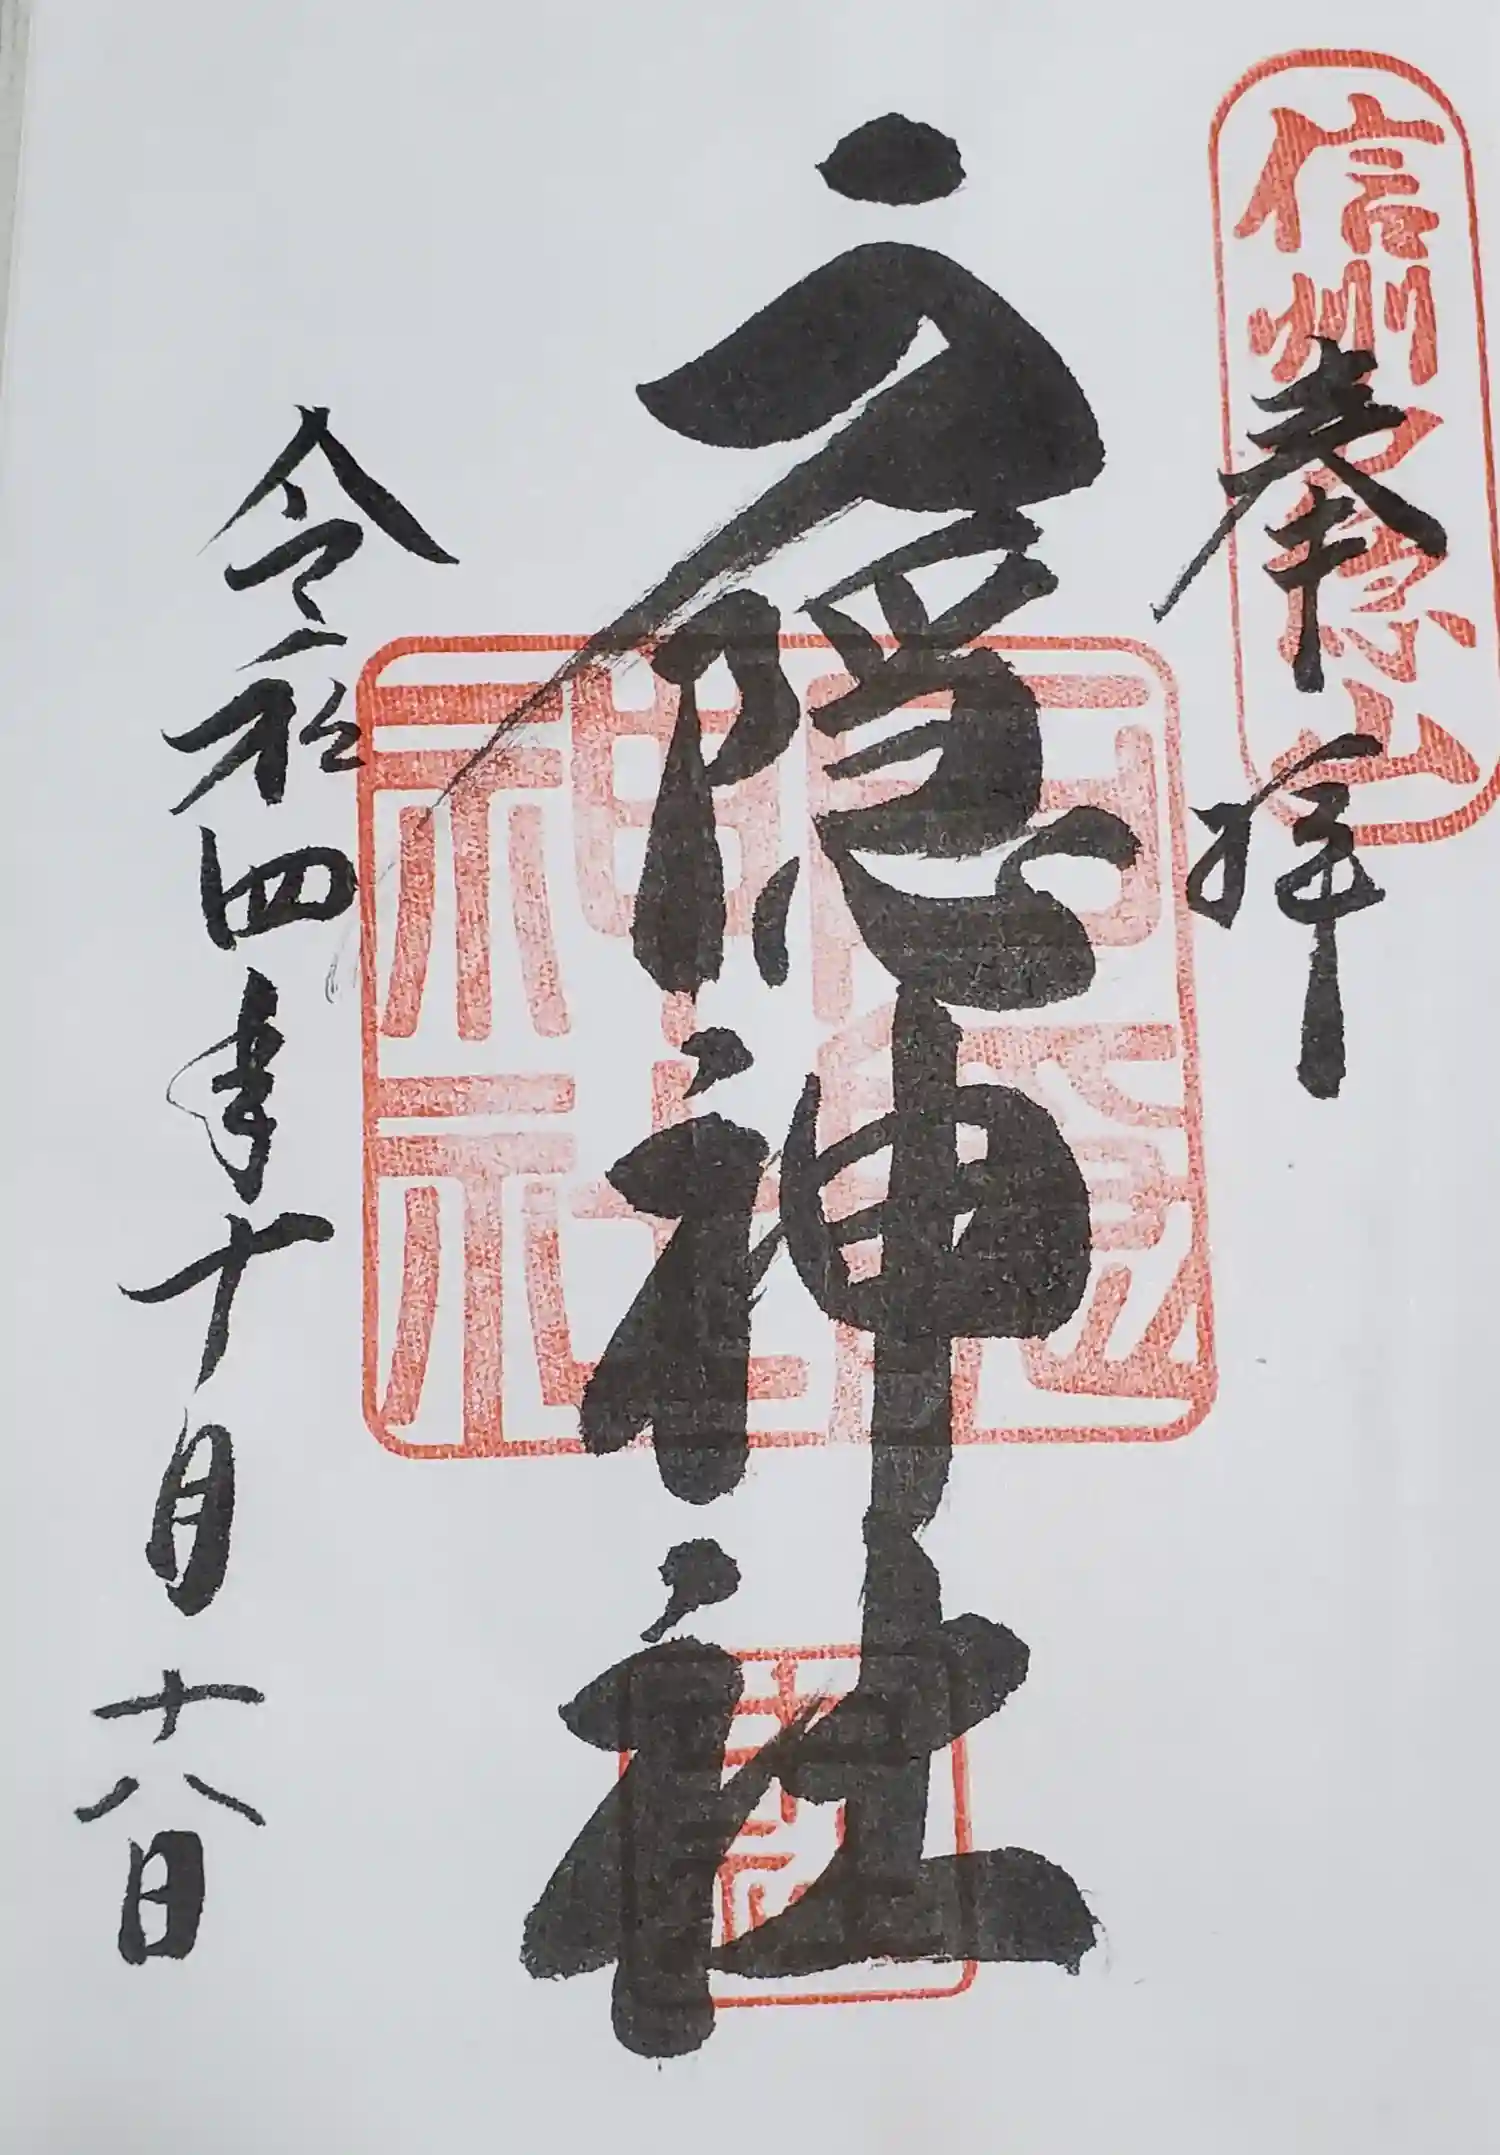 信州戸隠山
奉拝
戸隠神社
戸隠神社
令和四年十月十八日